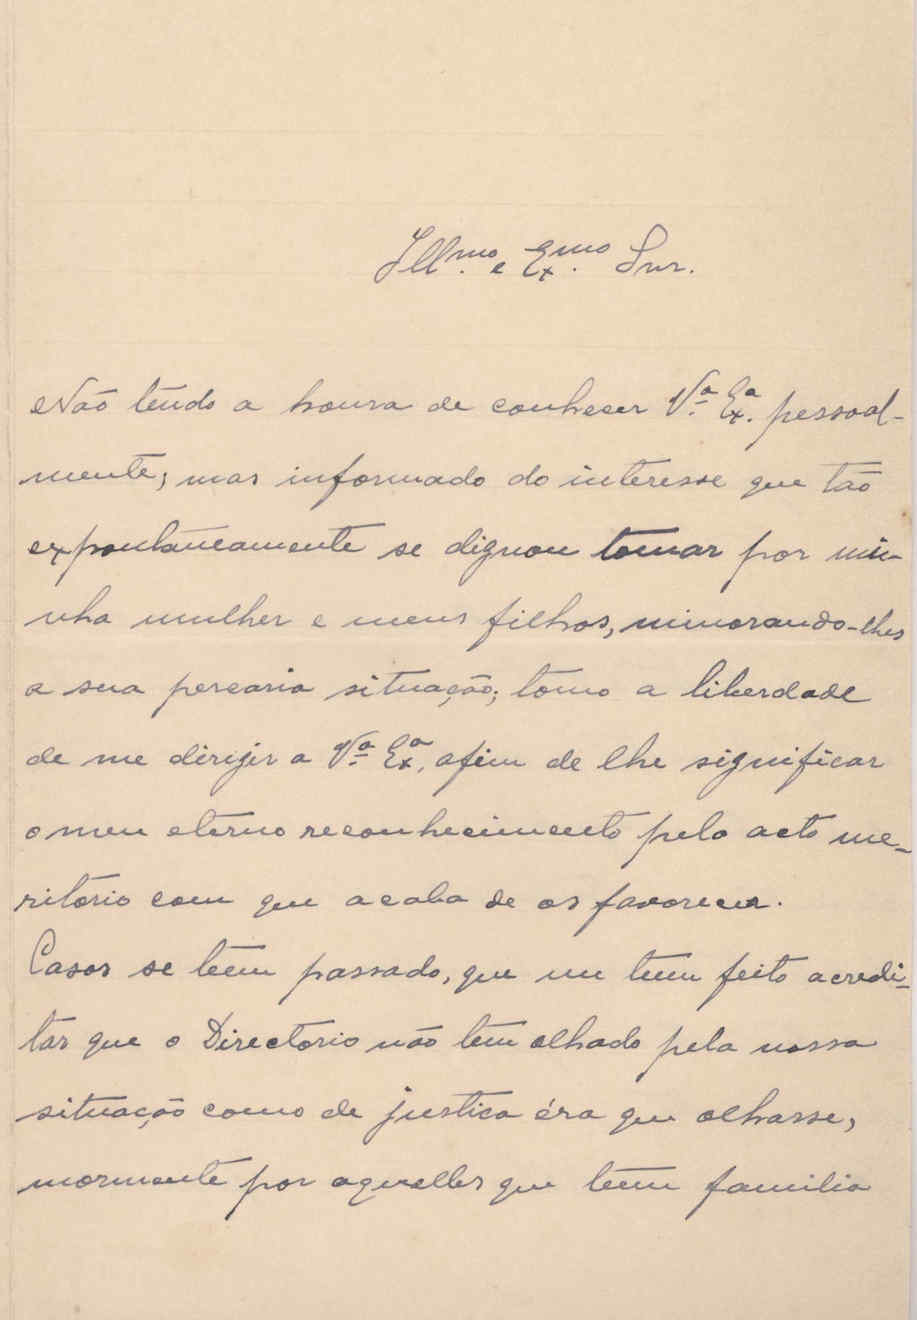 Illmo. e Exmo. Snr.
Não tendo a honra de conhecer V.ª Ex.ª pessoal-
mente; mas informado do interesse que tão
expontaneamente se dignou tomar por mi-
nha mulher e meus filhos, minorando-lhes
a sua percaria situação; tomo a liberdade
de me dirigir a V.ª Ex.ª, afim de lhe significar
o meu eterno reconhecimento pelo acto me-
ritorio com que acaba de os favorecer.
Casos se teem passado, que me teem feito acredi-
tar que o Directorio não tem olhado pela nossa
situação como de justiça éra que olhasse,
mormente por aquelles que teem familia